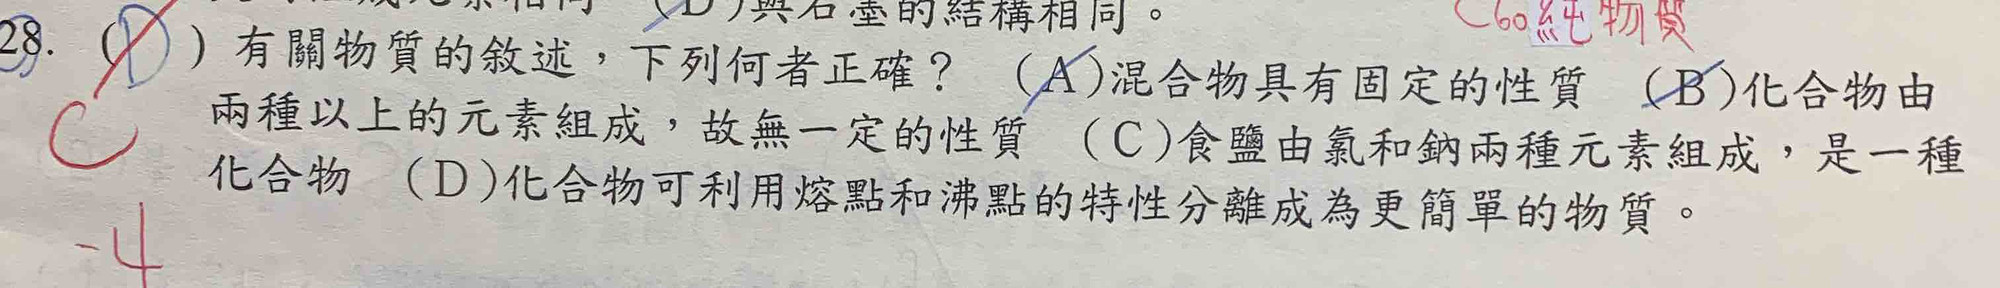 (D)與石墨的結構相同。 C60純物質
28. (D) 有關物質的敘述,下列何者正確? (A)混合物具有固定的性質 (B)化合物由
兩種以上的元素組成,故無一定的性質 (C)食鹽由氯和鈉兩種元素組成,是一種
C
化合物 (D)化合物可利用熔點和沸點的特性分離成為更簡單的物質。
-4